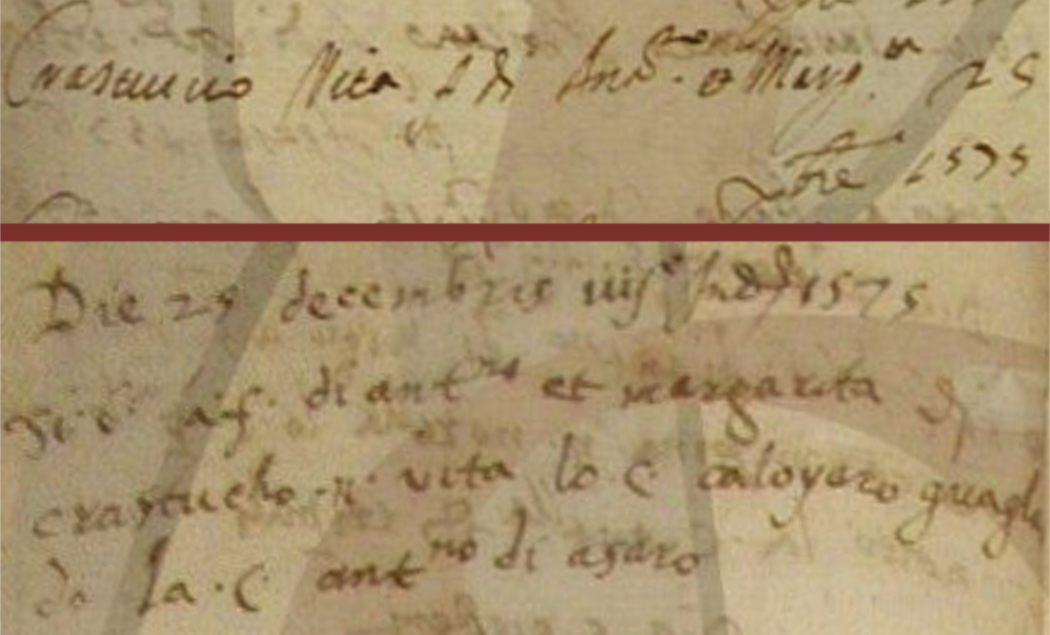 Crastucio Vita f. di Ant.º e Marg.ª 25
Xbre 1575
Die 25 decembris iiijᵉ Ind. 1575
a f. di antⁿⁱ et margarita di
crastucho n. vita lo c caloyero guagl
do la c antⁿᵒ di asaro